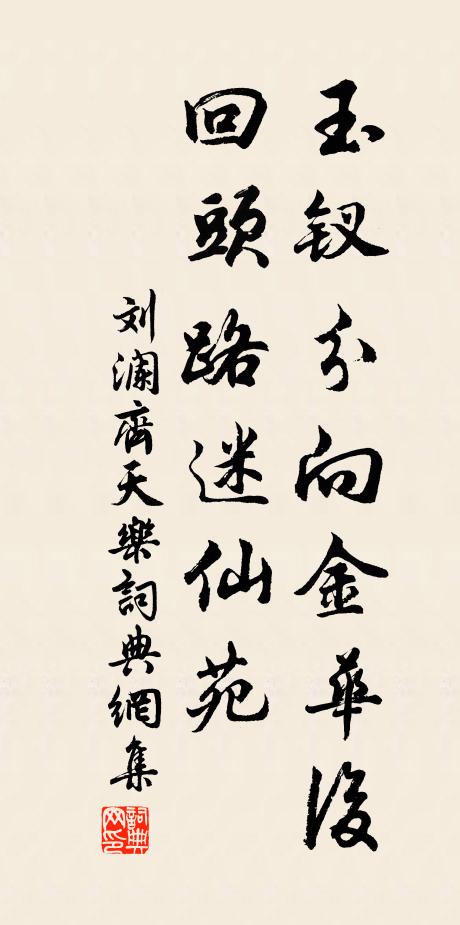 玉钗分向金華後
回頭路迷仙苑
刘澜齊天樂詞典網集
詞典网印